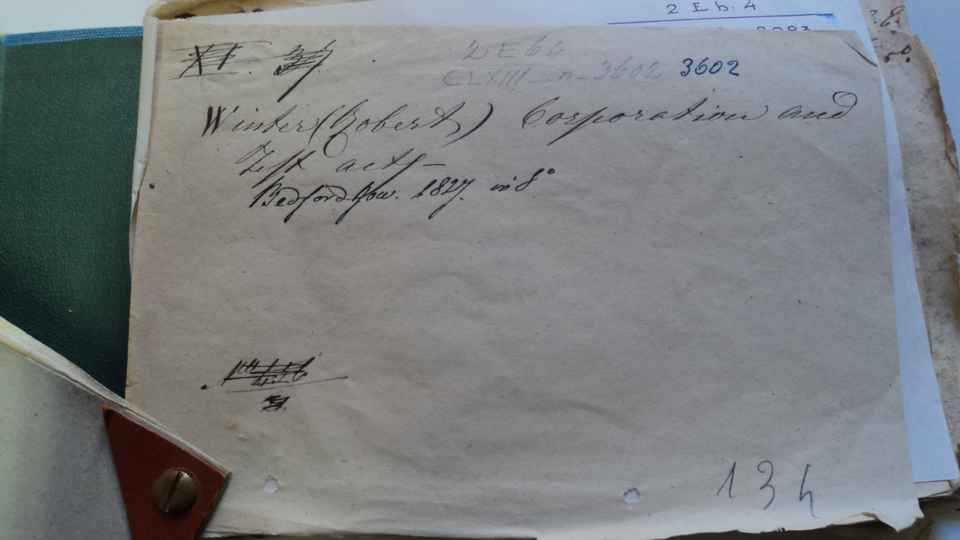 2 E b. 4
XI.
2 E b 4
CLXIII n. 3602 3602
Winter (Robert) Corporation and
Test acts
Bedford Row. 1827. in 8°
134